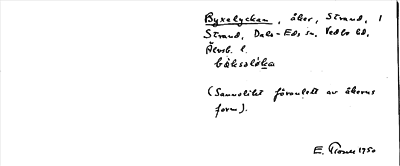 Byxelyckan, åker, Strand, 1
Strand, Dals-Eds sn, Vedbo hd,
Älvsb. l.
båksolåka
(Sannolikt föranlett av åkerns
form).
E. 1950